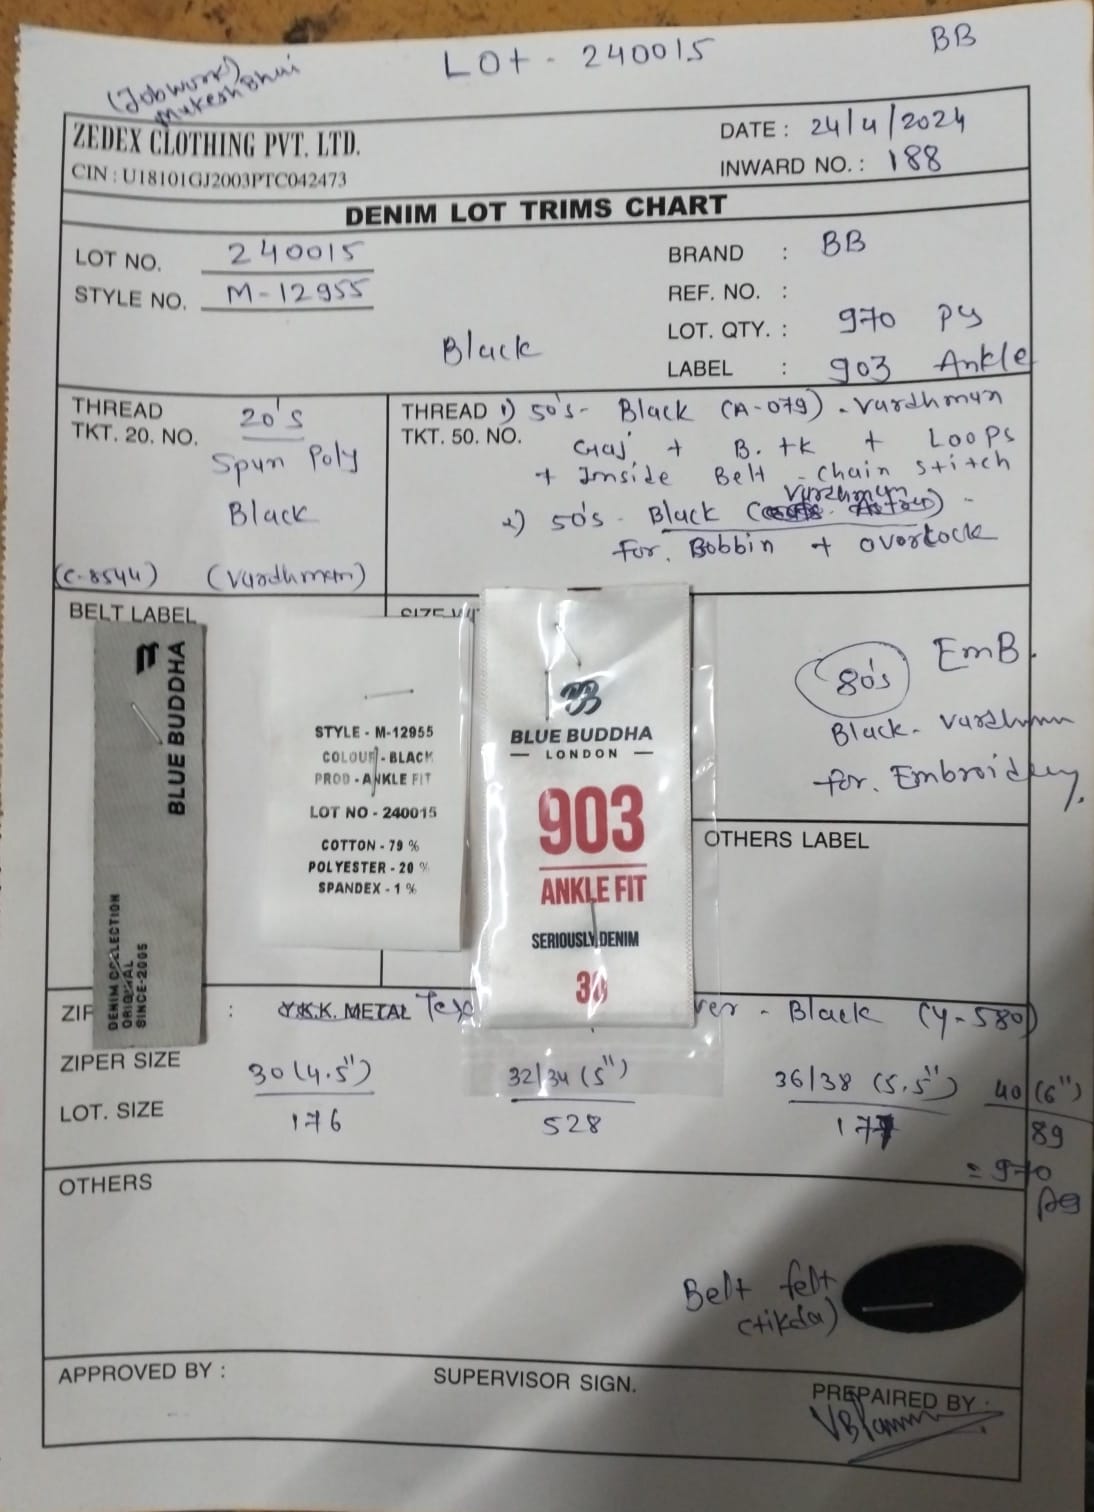 LOt - 240015
BB
(Jobwork)
Mukesh Bhai
ZEDEX CLOTHING PVT. LTD.
CIN : U18101GJ2003PTC042473
DATE : 24/4/2024
INWARD NO. : 188
DENIM LOT TRIMS CHART
LOT NO. 240015
STYLE NO. M-12955
Black
BRAND : BB
REF. NO. :
LOT. QTY. : 970 Pcs
LABEL : 903 Ankle
THREAD 20's
TKT. 20. NO.
Spun Poly
Black
(C-8544) (Vardhman)
THREAD 1) 50's - Black (A-079) - Vardhman
TKT. 50. NO. Gaj + B. tk + LooPs
+ Inside Belt - Chain stitch
Vardhman
2) 50's - Black
For. Bobbin + overlock
BELT LABEL
BLUE BUDDHA
DENIM COLLECTION
ORIGINAL
SINCE-2005
STYLE - M-12955
COLOUR - BLACK
PROD - ANKLE FIT
LOT NO - 240015
COTTON - 79 %
POLYESTER - 20 %
SPANDEX - 1 %
BLUE BUDDHA
— LONDON —
903
ANKLE FIT
SERIOUSLY DENIM
80's EmB.
Black - Vardhman
for. Embroidery.
OTHERS LABEL
: Y.K.K. METAL
- Black (Y-580)
ZIPER SIZE 30 (4.5") 32/34 (5") 36/38 (5.5") 40 (6")
LOT. SIZE 176 528 177 89
= 970
Pcs
OTHERS
Belt felt
(tikda)
APPROVED BY :
SUPERVISOR SIGN.
PREPAIRED BY :